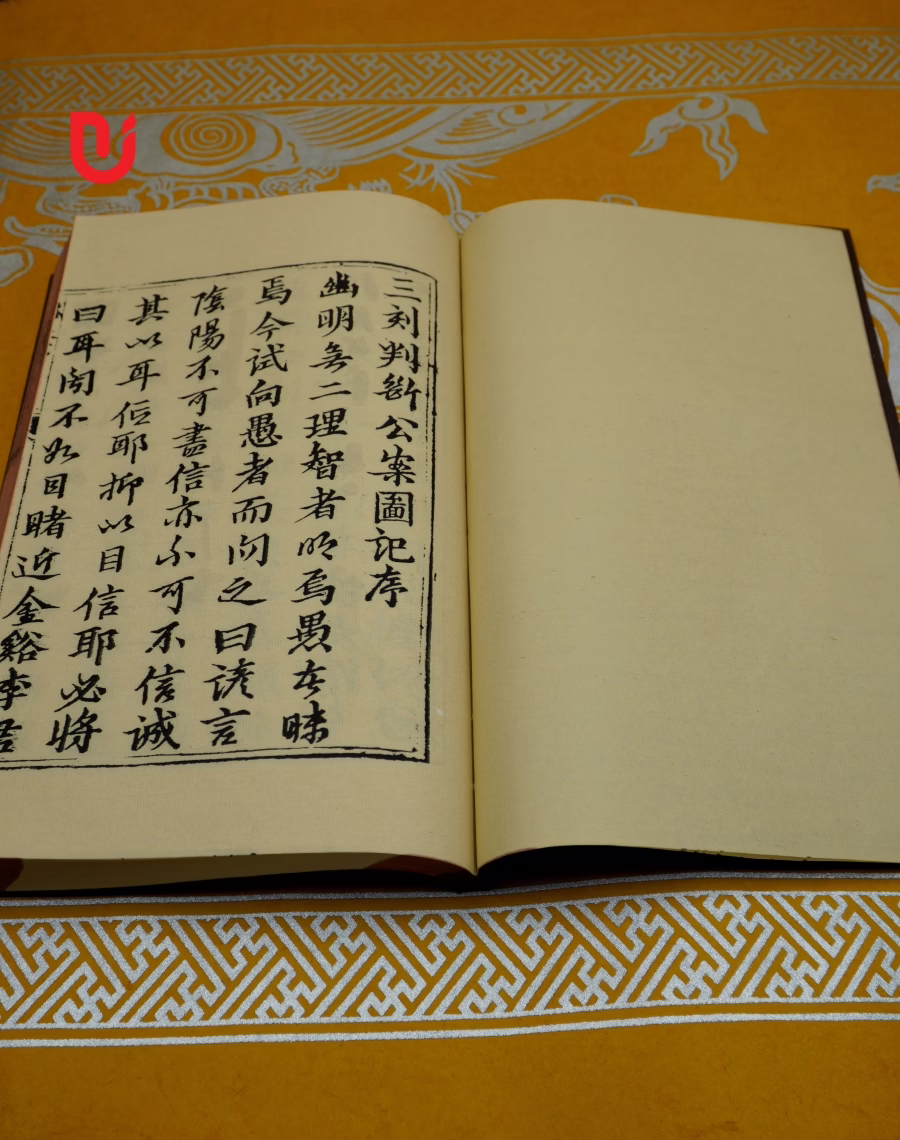 三刻判斷公案圖記序
幽明無二理智者明焉愚者昧
焉今試向愚者而問之曰諺言
陰陽不可盡信亦不可不信誠
其以耳信耶抑以目信耶必將
曰耳聞不如目睹近金谿李君